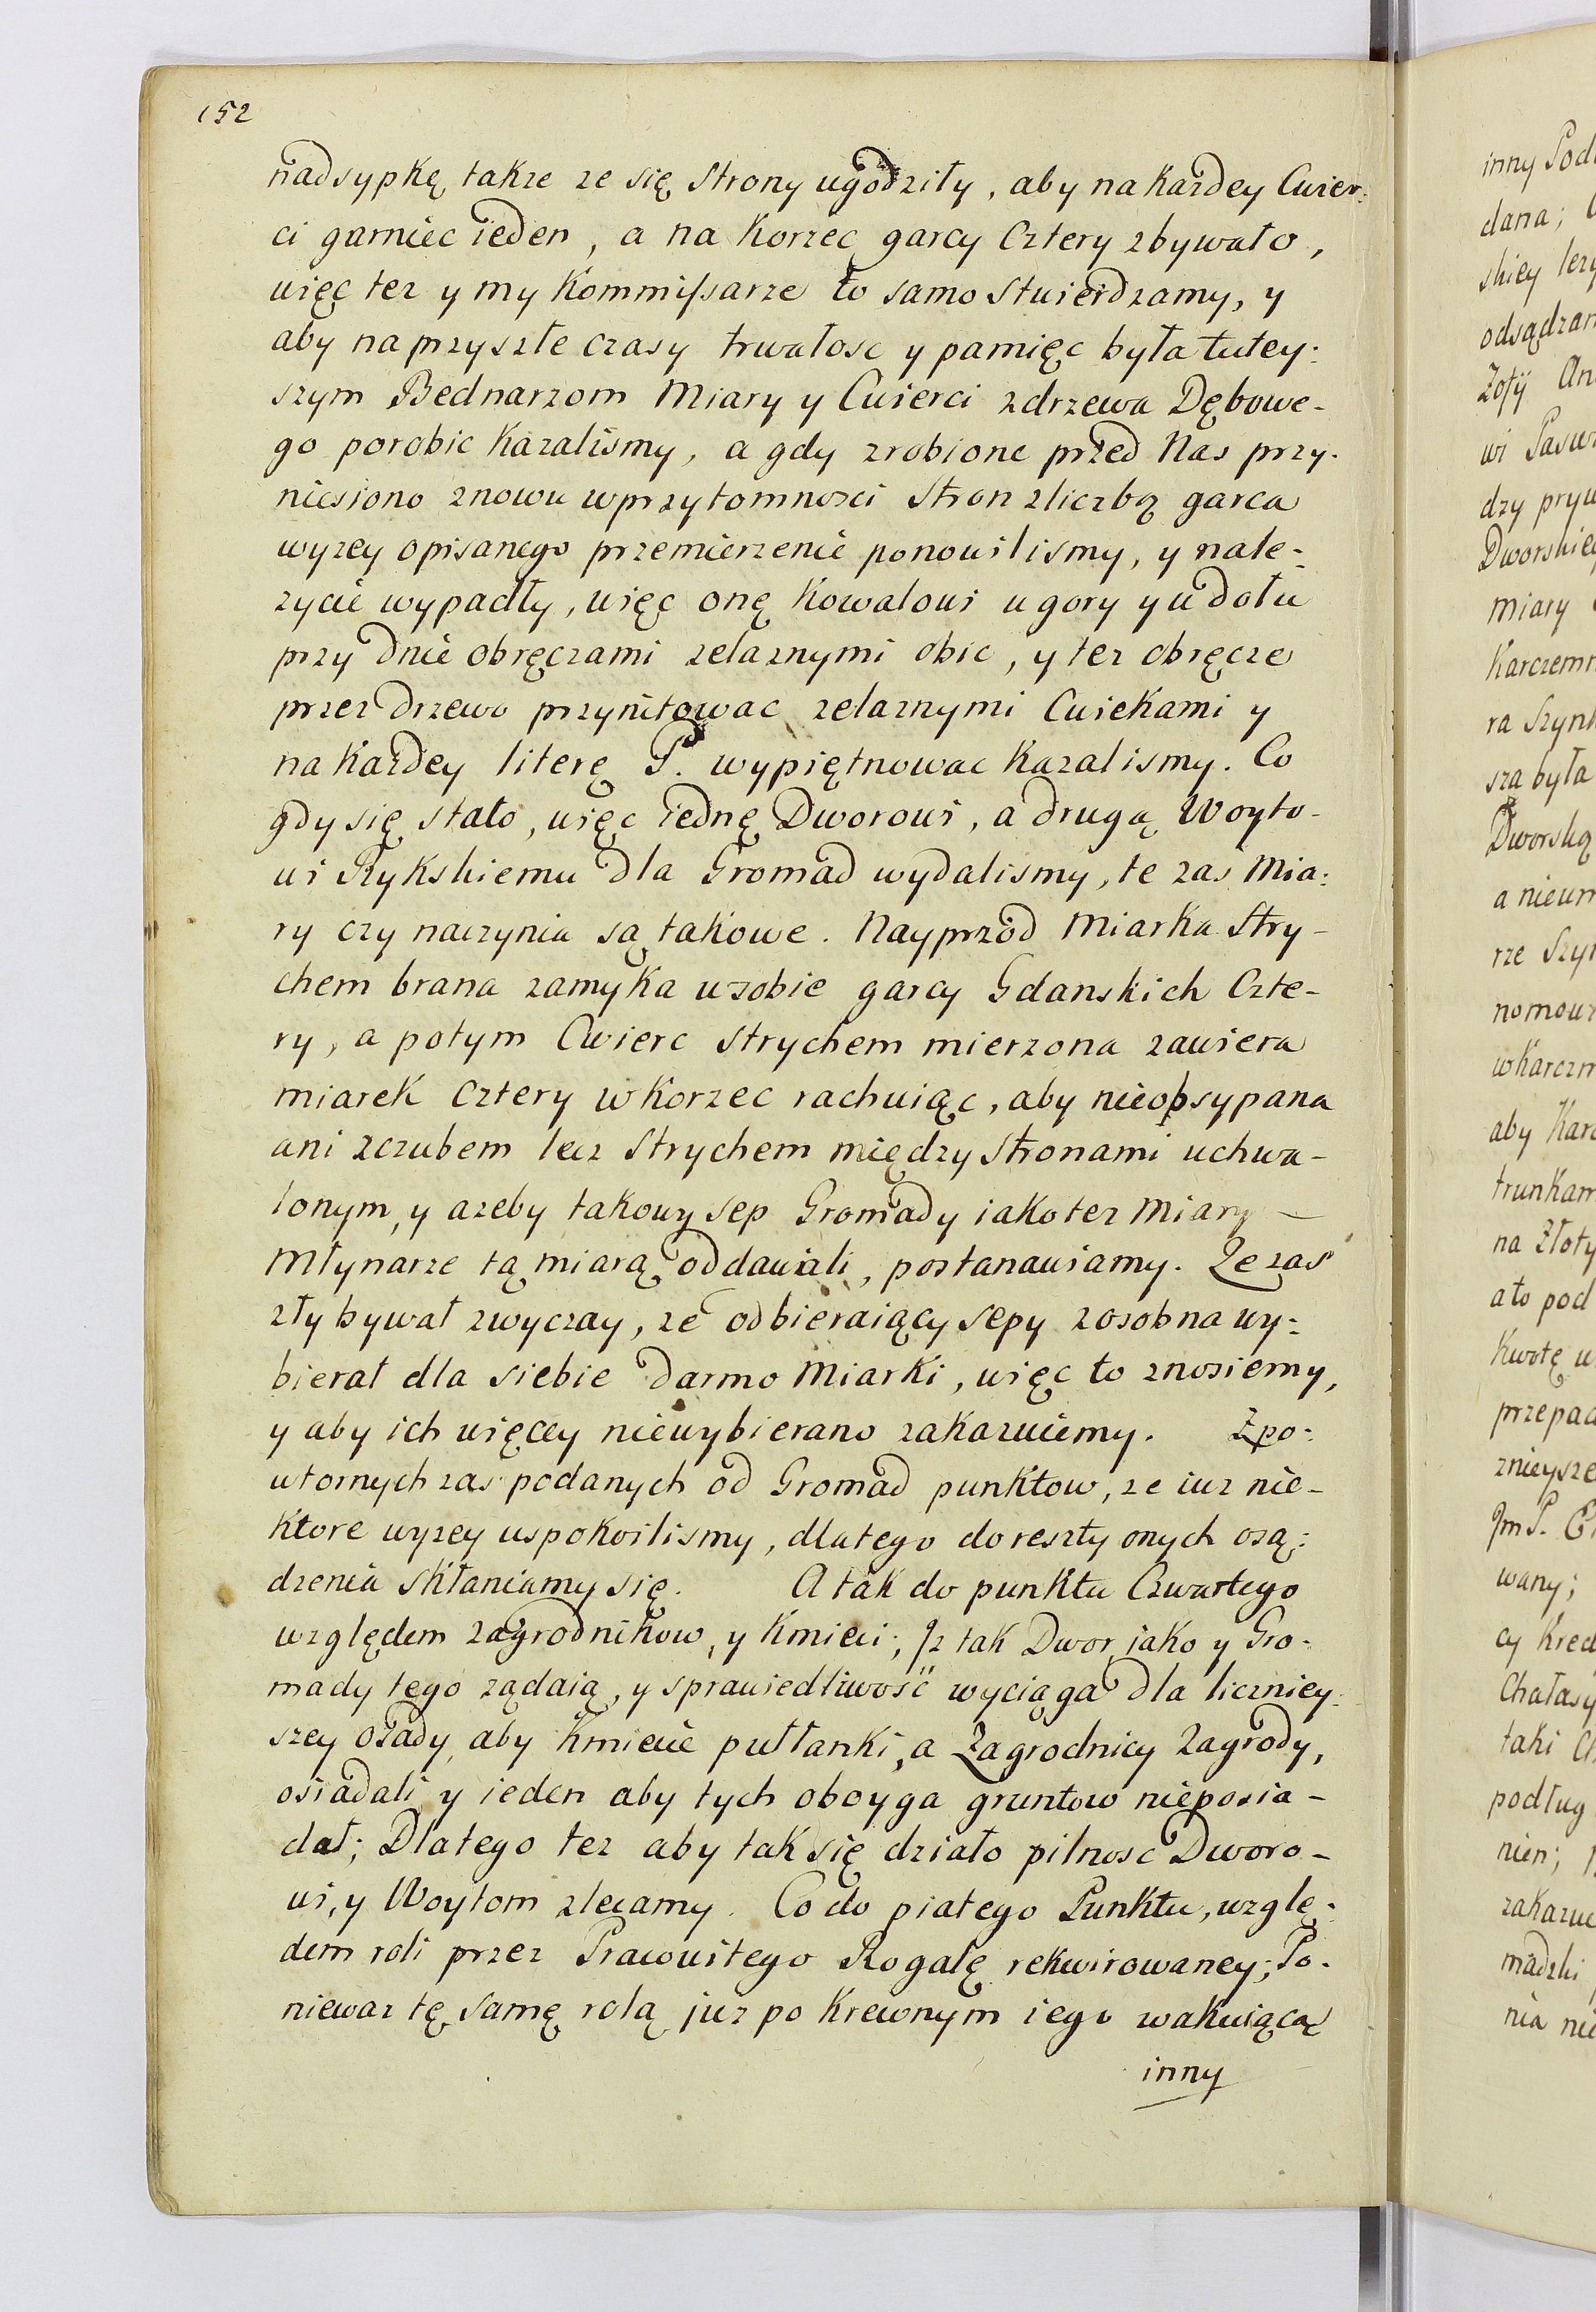 152
nadsypkę takze ze się Strony ugodziły, aby na Kazdey Cwier:
ci garniec ieden, a na Korzec garcy Cztery zbywało,
więc tez y my Kommissarze to samo Stwierdzamy, y
aby na przyszłe czasy trwałosc y pamięc była tutey:
szym Bednarzom Miary y Cwierci z drzewa Dębowe-
go porobic Kazalismy, a gdy zrobione przed Nas przy-
niesiono znowu w przytomnosci Stron z liczbą garca
wyzey opisanego przemierzenie ponowilismy, y nale-
zycie wypadły, więc onę Kowalowi u gory y u dołu
przy dnie obręczami zelaznymi obic, y tez obręcze
przez drzewo przynitowac zelaznymi Cwiekami y
na Kazdey literę P. wypiętnowac Kazalismy. Co
gdy się stało, więc iednę Dworowi, a drugą Woyto-
wi Rykskiemu dla Gromad wydalismy, te zas Mia:
ry czy naczynia są takowe. Nayprzod Miarka Stry-
chem brana zamyka w sobie garcy Gdanskich Czte-
ry, a potym Cwierc Strychem mierzona zawiera
miarek Cztery w Korzec rachuiąc, aby nieopsypana
ani z czubem lecz Strychem między Stronami uchwa-
lonym, y azeby takowy sep Gromady iako tez Miary —
Młynarze tą miarą oddawali, postanawiamy. Ze zas
zły bywał zwyczay, ze odbieraiący sepy z osobna wy:
bierał dla siebie darmo Miarki, więc to znosiemy,
y aby ich więcey niewybierano zakazuiemy. Z po:
wtornych zas podanych od Gromad punktow, ze iuz nie-
ktore wyzey uspokoilismy, dlatego do reszty onych osą:
dzenia skłaniamy się. A tak do punktu Czwartego
względem zagrodnikow, y Kmieci; Jz tak Dwor jako y Gro-
mady tego ządaią, y sprawiedliwość wyciąga dla liczniey:
szey osady, aby Kmiecie pułłanki, a Zagrodnicy Zagrody,
osiadali y ieden aby tych oboyga gruntow nieposia-
dał; Dlatego tez aby tak się działo pilnosc Dworo-
wi, y Woytom zlecamy. Co do piątego Punktu, wzglę:
dem roli przez Pracowitego Rogalę rekwirowaney; Po-
niewaz tę samę rolą juz po Krewnym iego wakuiącą
inny
inny Pod
dana;
skiey lezy
odsądzam
Zofij An
wi Pasw
dzy pryw
Dworskie
miary
Karczemn
ra Szynk
sza była
Dworską
a nieum
rze Szyn
nomow
w Karczm
aby Karc
trunkam
na Złoty
a to pod
Kwotę w
przepad
znieysze
JmP.
wany;
cy Kred
Chałasy
taki
podług
nien;
zakazue
madzki
nia nie